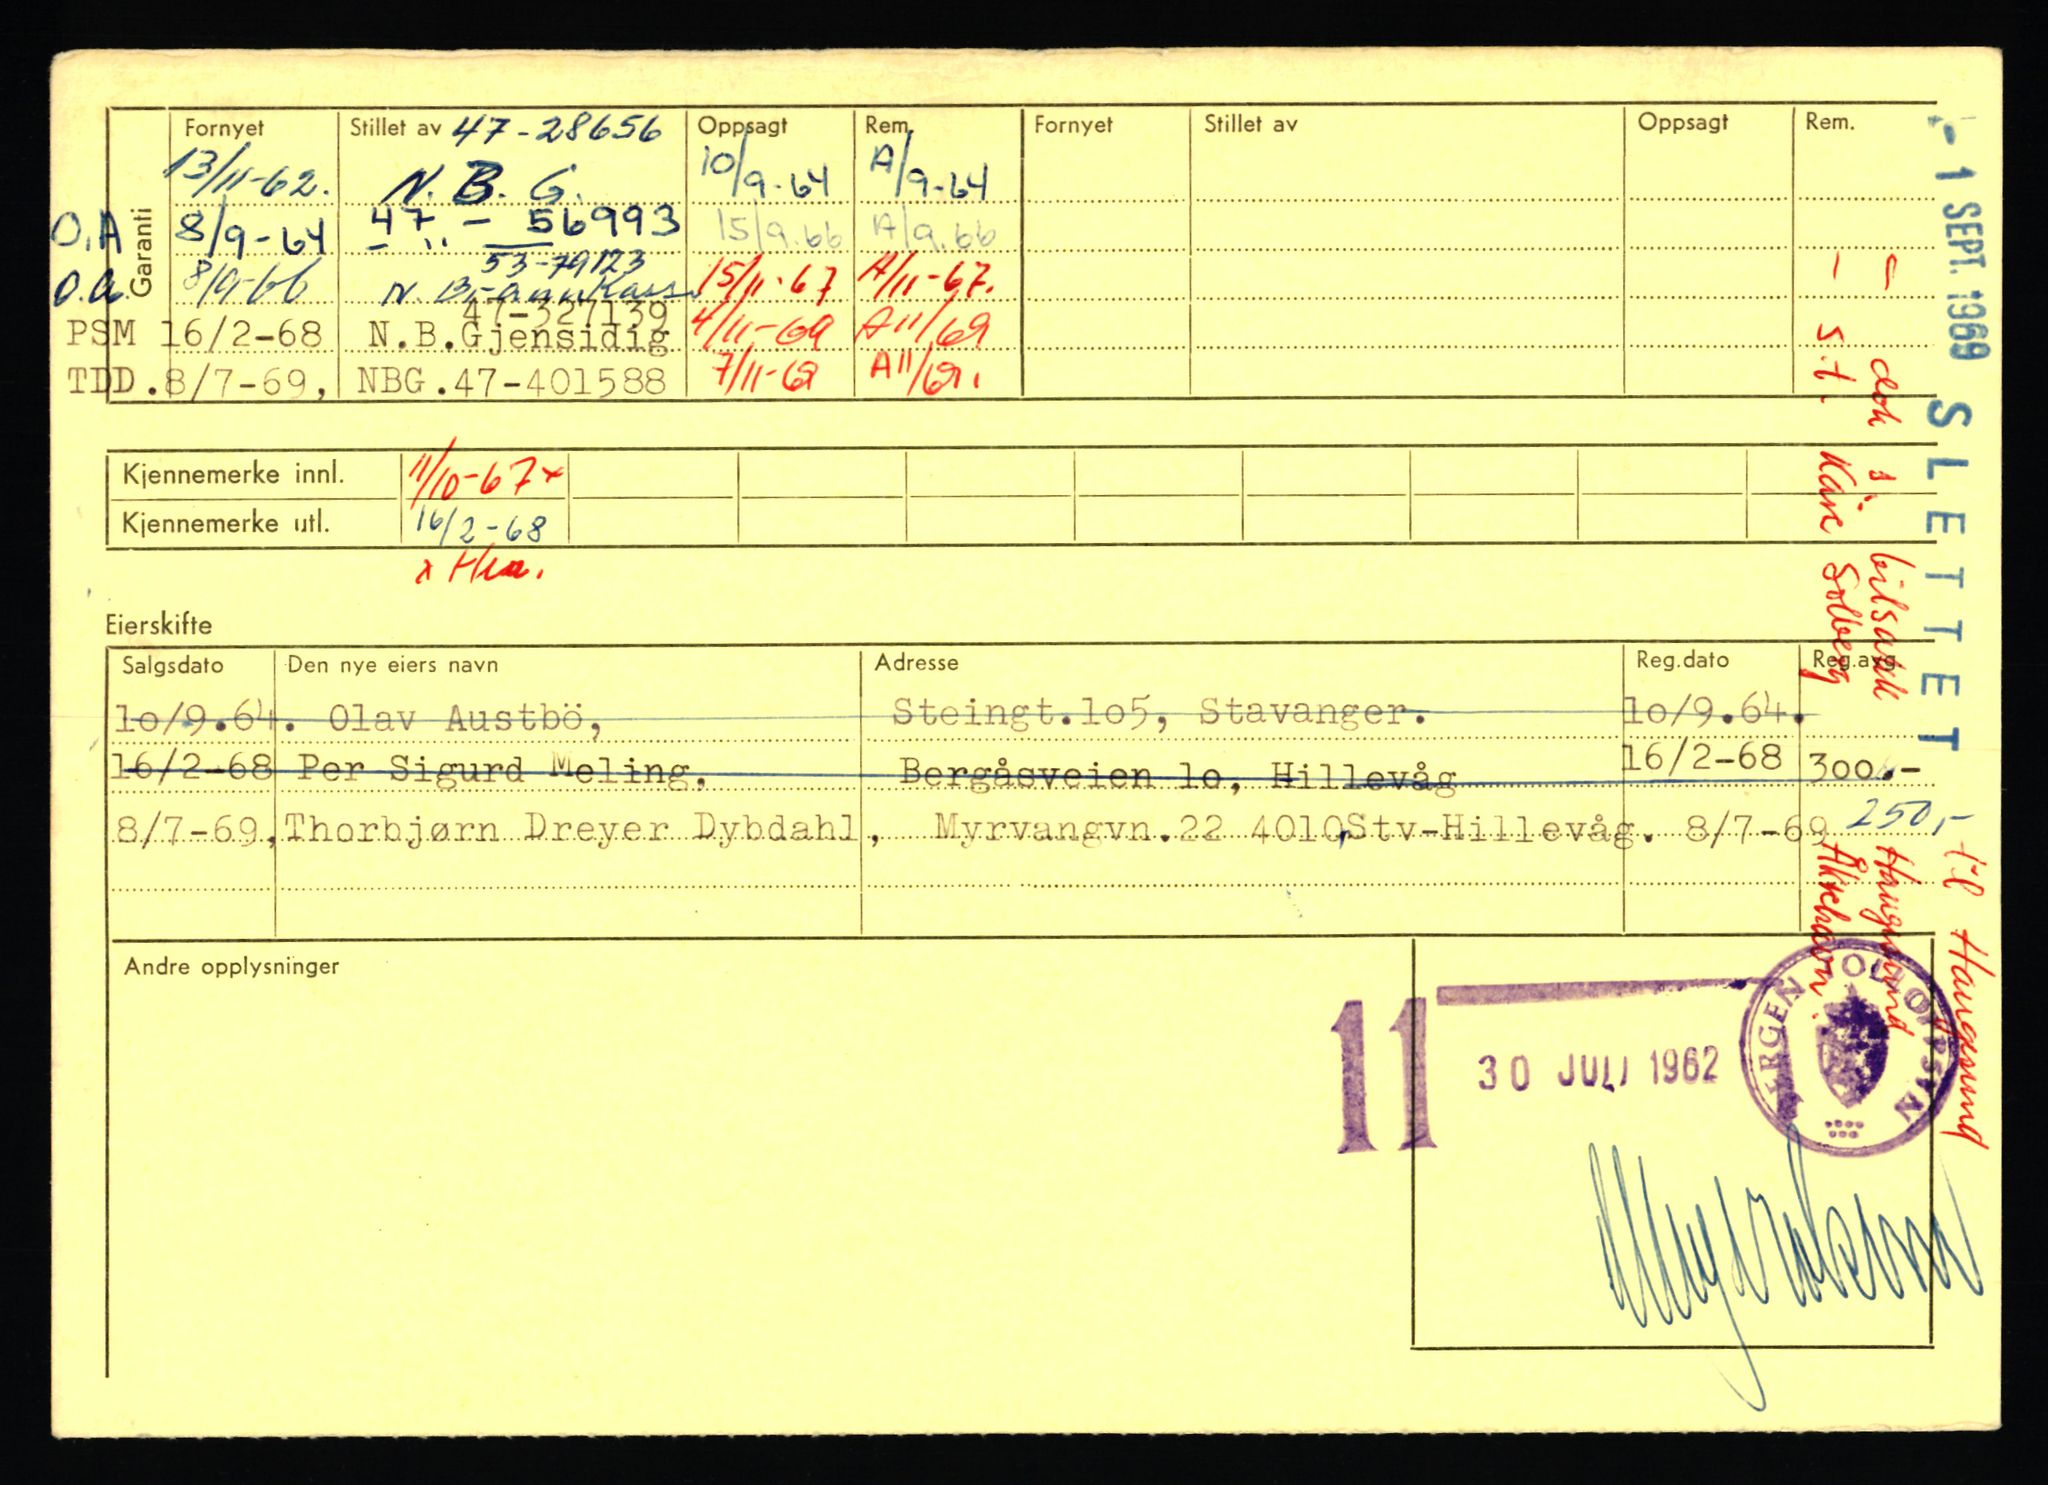 Garanti
Fornyet Stillet av 47-28656 Oppsagt Rem. Fornyet Stillet av Oppsagt Rem.
13/11-62. N. B. G. 10/9-64 A/9-64
O.A 8/9-64 47 - 56993 15/9.66 A/9.66
53-79123
O.A. 8/9-66 15/11-67 A/11-67.
47-327139
PSM 16/2-68 N.B.Gjensidig 4/11-69 A11/69
TDD.8/7-69, NBG.47-401588 7/11-69 A11/69.
Kjennemerke innl. 11/10-67 x
Kjennemerke utl. 16/2-68
Eierskifte
Salgsdato Den nye eiers navn Adresse Reg.dato Reg.avg.
10/9.64. Olav Austbö, Steingt.105, Stavanger. 10/9.64.
16/2-68 Per Sigurd Meling, Bergåsveien 10, Hillevåg 16/2-68 300.-
8/7-69, Thorbjørn Dreyer Dybdahl, Myrvangvn.22 4010,Stv-Hillevåg. 8/7-69 250,-
Andre opplysninger
11
30 JULI 1962
BERGEN
- 1 SEPT. 1969 SLETTET
til Haugesund
Haugesund
s.t. Kåre Solberg Åkrehavn.